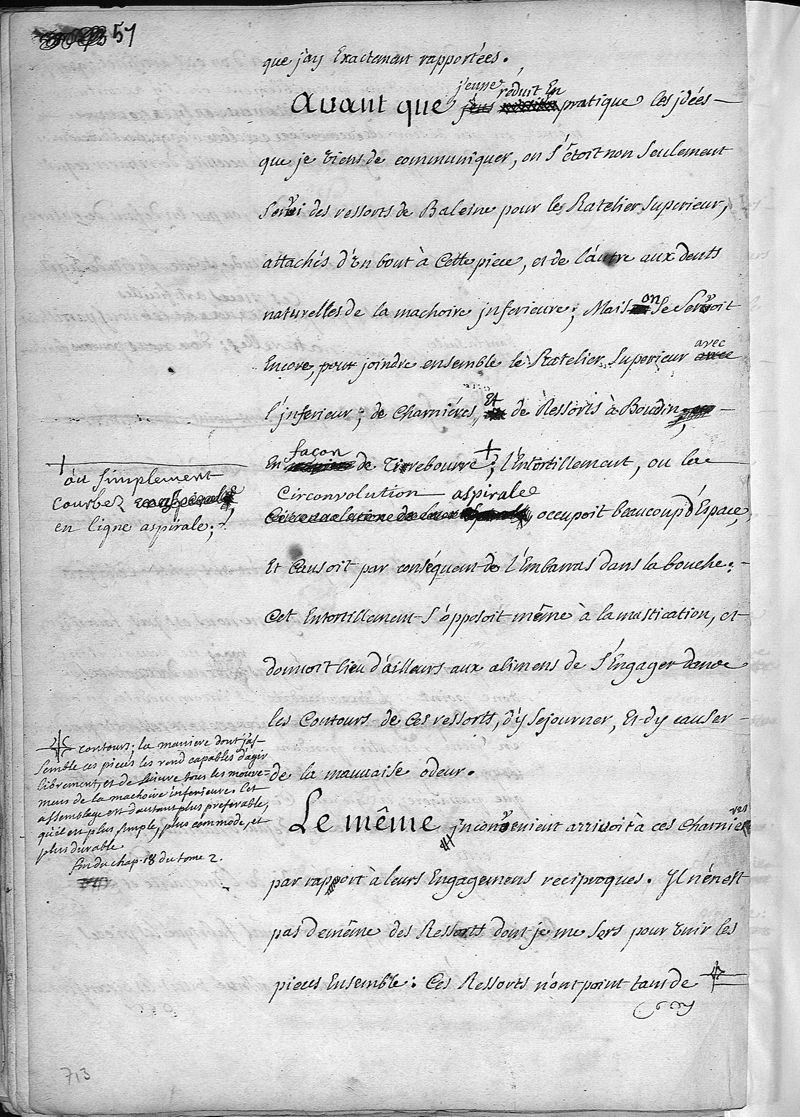 57
que j'ay Exactement rapportées.
jeusse réduit En
Avant que jeus pratique les jdées
que je viens de communiquer, on s'étoit non seulement
servi des ressorts de Baleine pour les Ratelier superieur,
attachés d'un bout à Cette piece, et de l'autre aux dents
naturelles de la machoire jnferieure; Mais on se servoit
Encore, pour joindre ensemble le Ratelier superieur avec
avec
l'jnferieur; de Charniéres, Et de Ressorts à Boudin,
façon
En de Tirrebourre +; l'Entortillement, ou la
Circonvolution aspirale
occupoit beaucoup d'Espace,
Et Causoit par conséquent de l'Embarras dans la bouche:
Cet Entortillement s'opposoit même à la mastication, et
donnoit lieu d'ailleurs aux alimens de s'Engager dans
les Contours de Ces ressorts, d'y sejourner, Et d'y causer
de la mauvaise odeur.
Le même jnconvenient arrivoit à ces Charnieres
par rapport à leurs Engagemens reciproques. Jl n'en est
pas de même des Ressorts dont je me sers pour unir les
pieces Ensemble: Ces Ressorts n'ont point tant de
+ ou simplement
courbez
en ligne aspirale;
contours; la maniere dont j'as-
semble ces pieces les rend capables d'agir
librement, et de suivre tous les mouve-
mens de la machoire inferieure. Cet
assemblage est d'autant plus preferable,
qu'il est plus simple, plus commode, et
plus durable
fin du chap. 18 du tome 2.
713